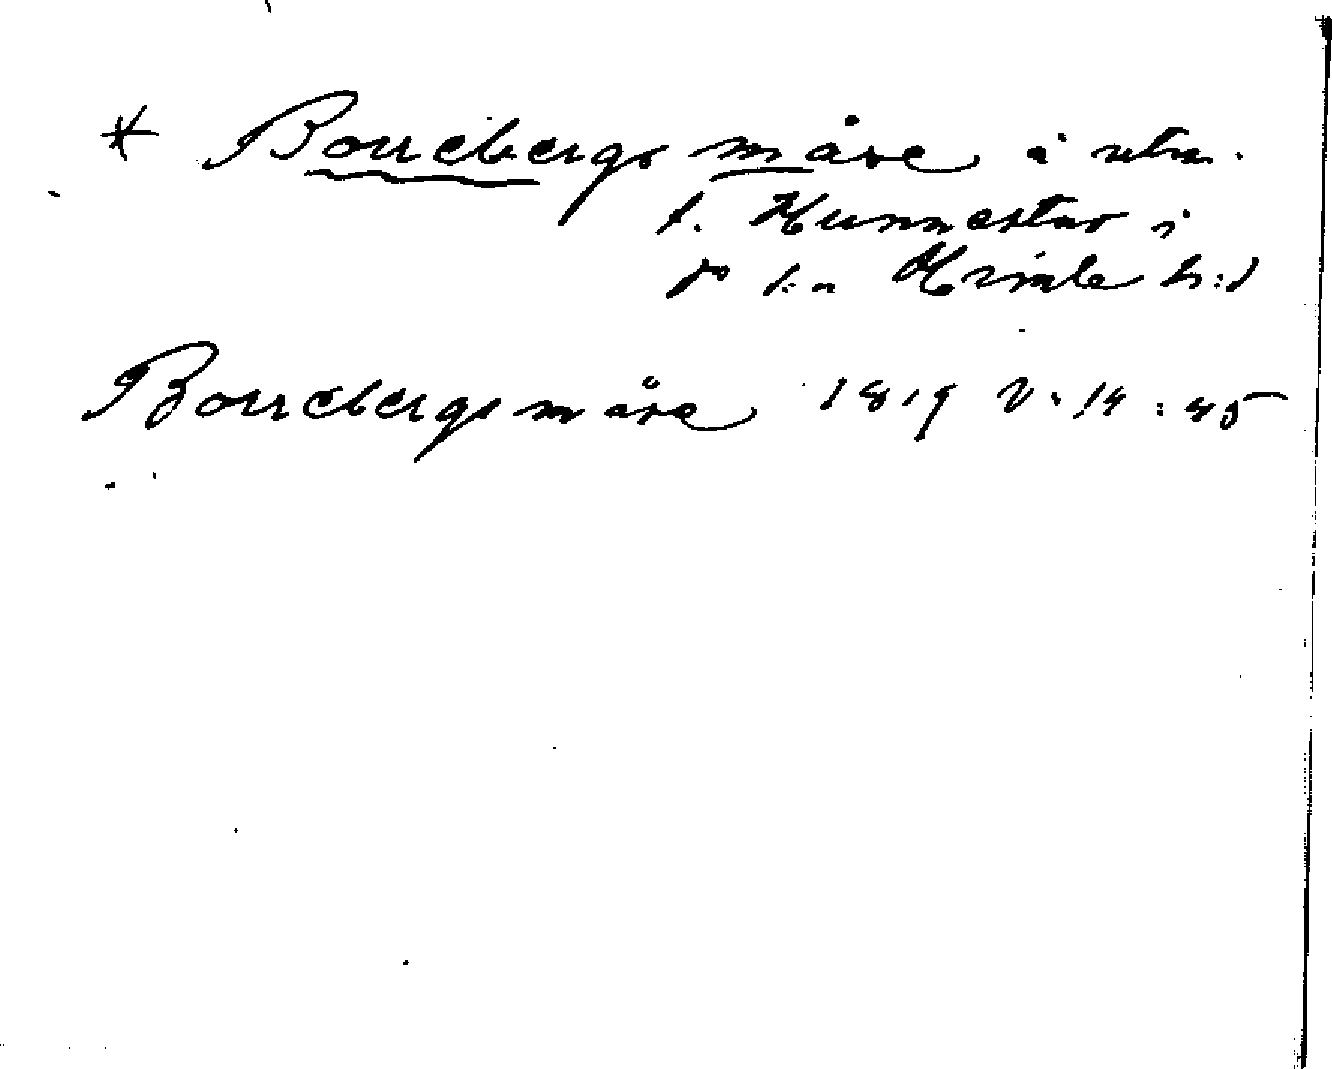 * Borrebergs måse å utm.
t. Hunnestad i
so sn Himle hd
Borrebergsmåse 1819 V. 14:45